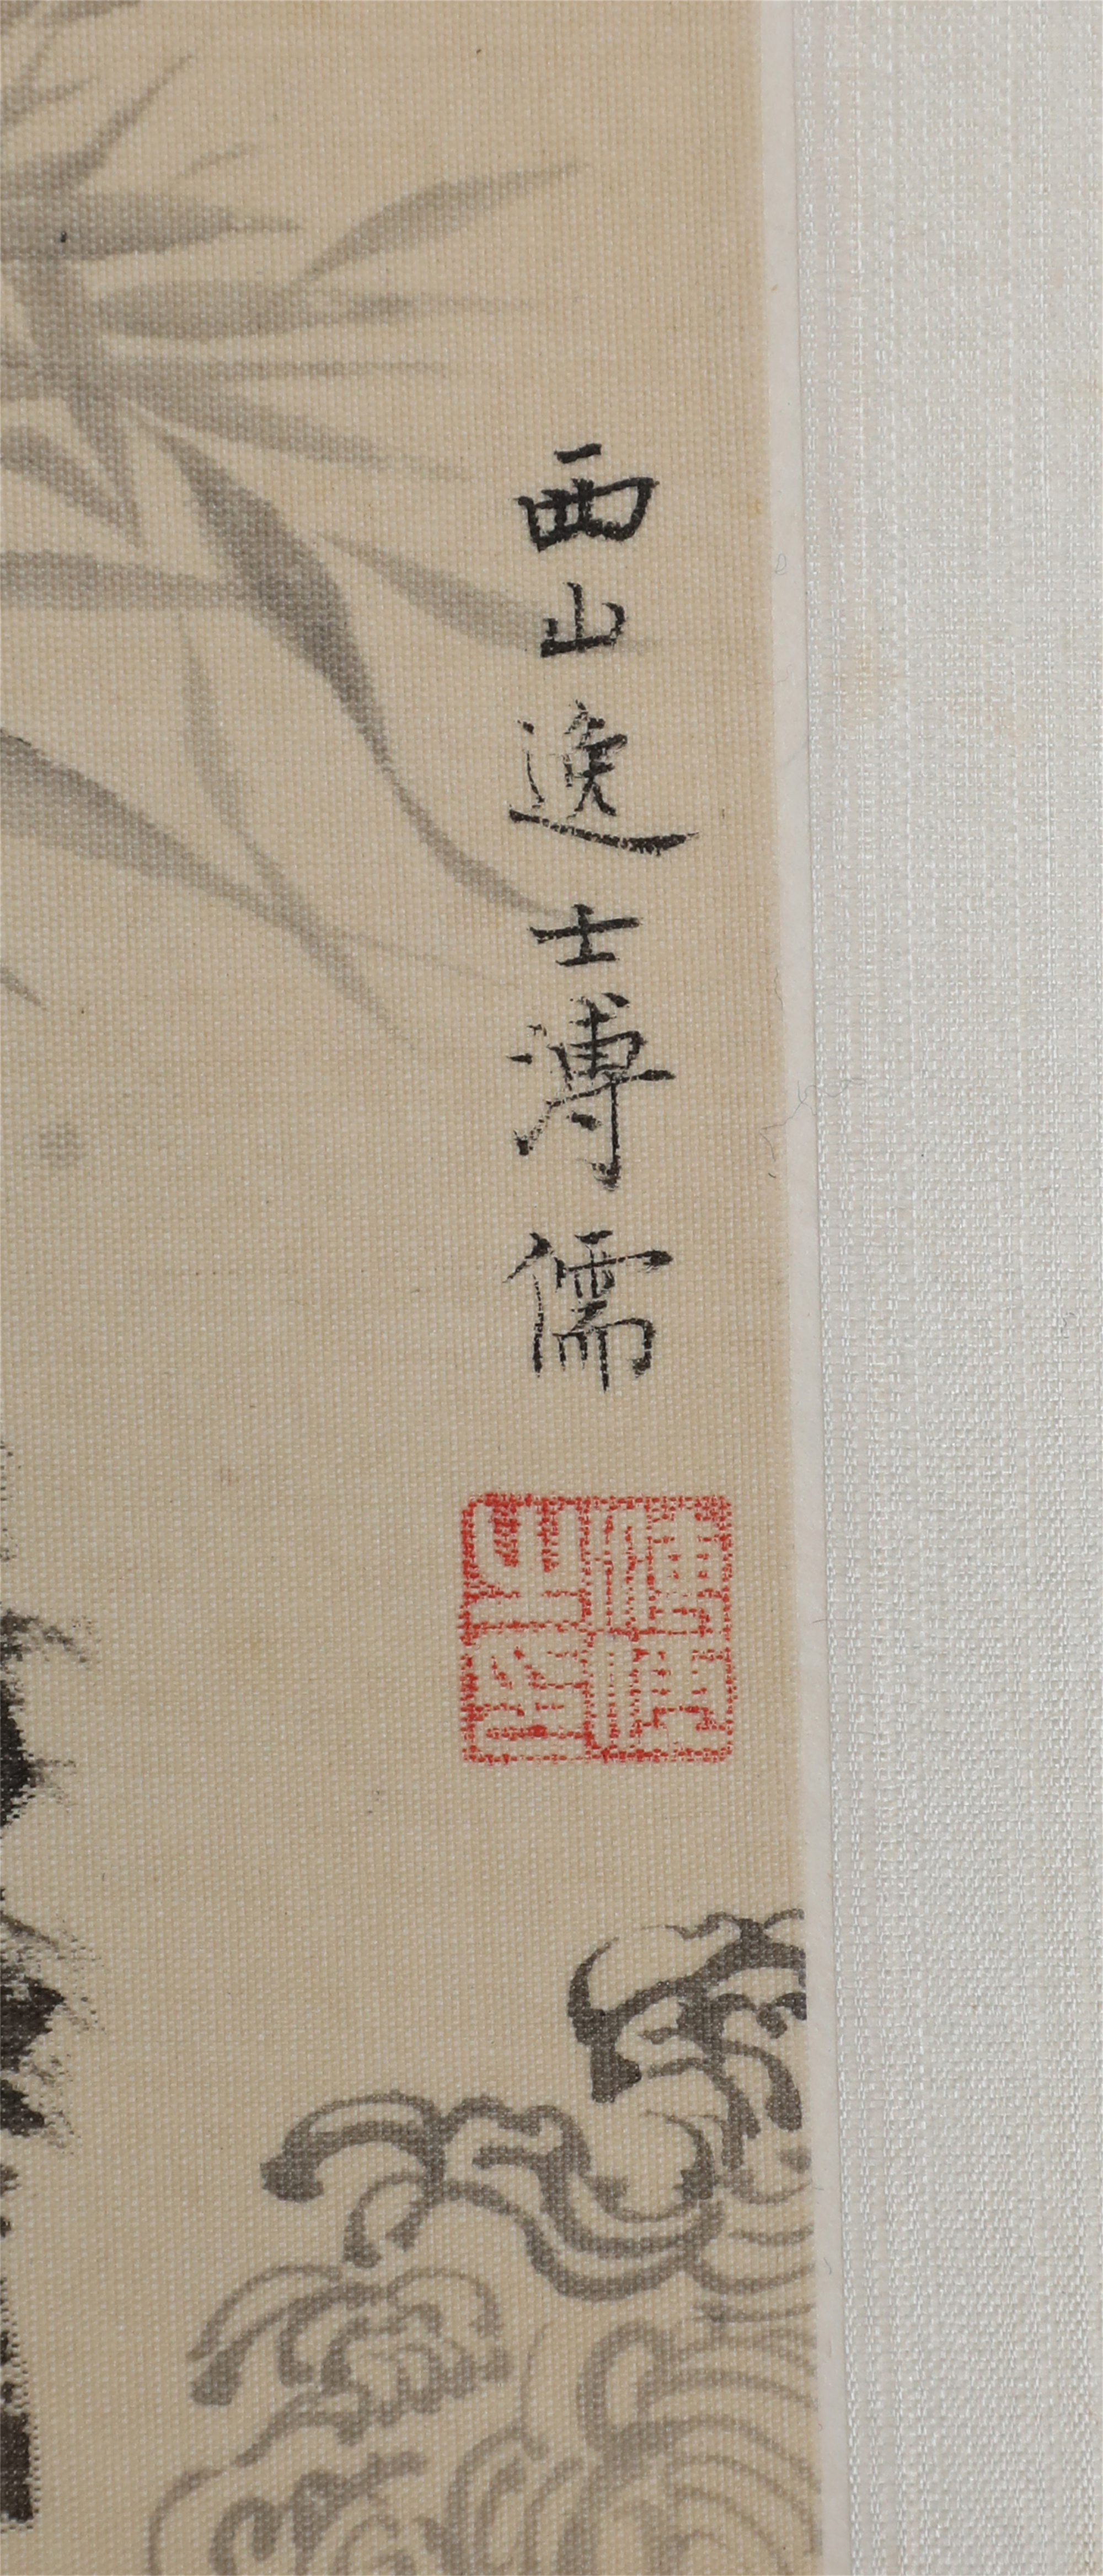 西山逸士溥儒
溥儒之印